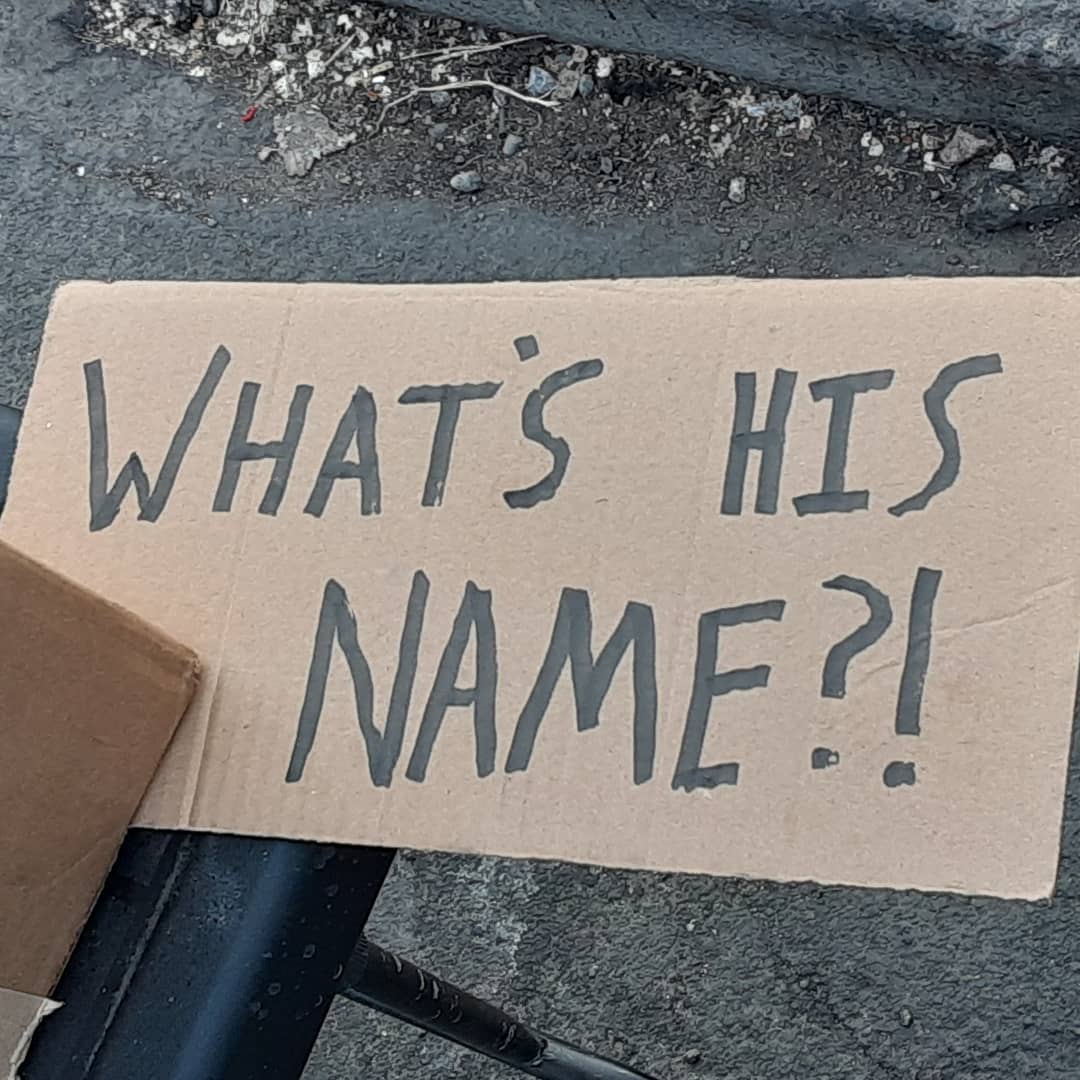 WHAT'S HIS
NAME?!